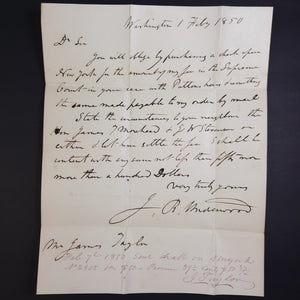 Washington 1 Feby 1850
Dr Sir
You will oblige by purchasing a check upon
New York for the amount of my fee in the Supreme
Court in your case with Patterson &
the same made payable to my order by mail
State the circumstances to your neighbors the
Hon James T Morehead &
either of let them settle the fee I shall be
content with any sum not less than fifty nor
more than a hundred Dollars
very truly yours
J. R. Underwood
Mr James Taylor
Feb. 7th 1850 Sent draft on New York
for $50
J Taylor